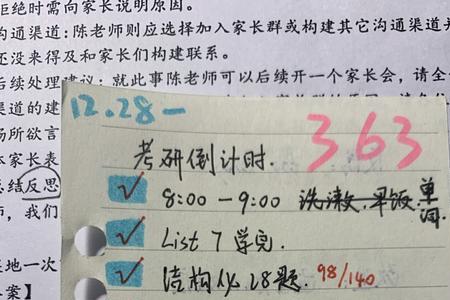 拒绝时需向家长说明原因。
沟通渠道:陈老师则应选择加入家长群或构建其它沟通渠道并
还没来得及和家长们构建联系。
后续处理建议:就此事陈老师可以后续开一个家长会,请全
渠道的建
场所欲言
本家长表
总结反思
师,我们
是地一次
答案】
12.28 一
考研倒计时. 363
8:00-9:00 洗漱.早饭.单词.
List 7 学完.
结构化 28题. 98/140